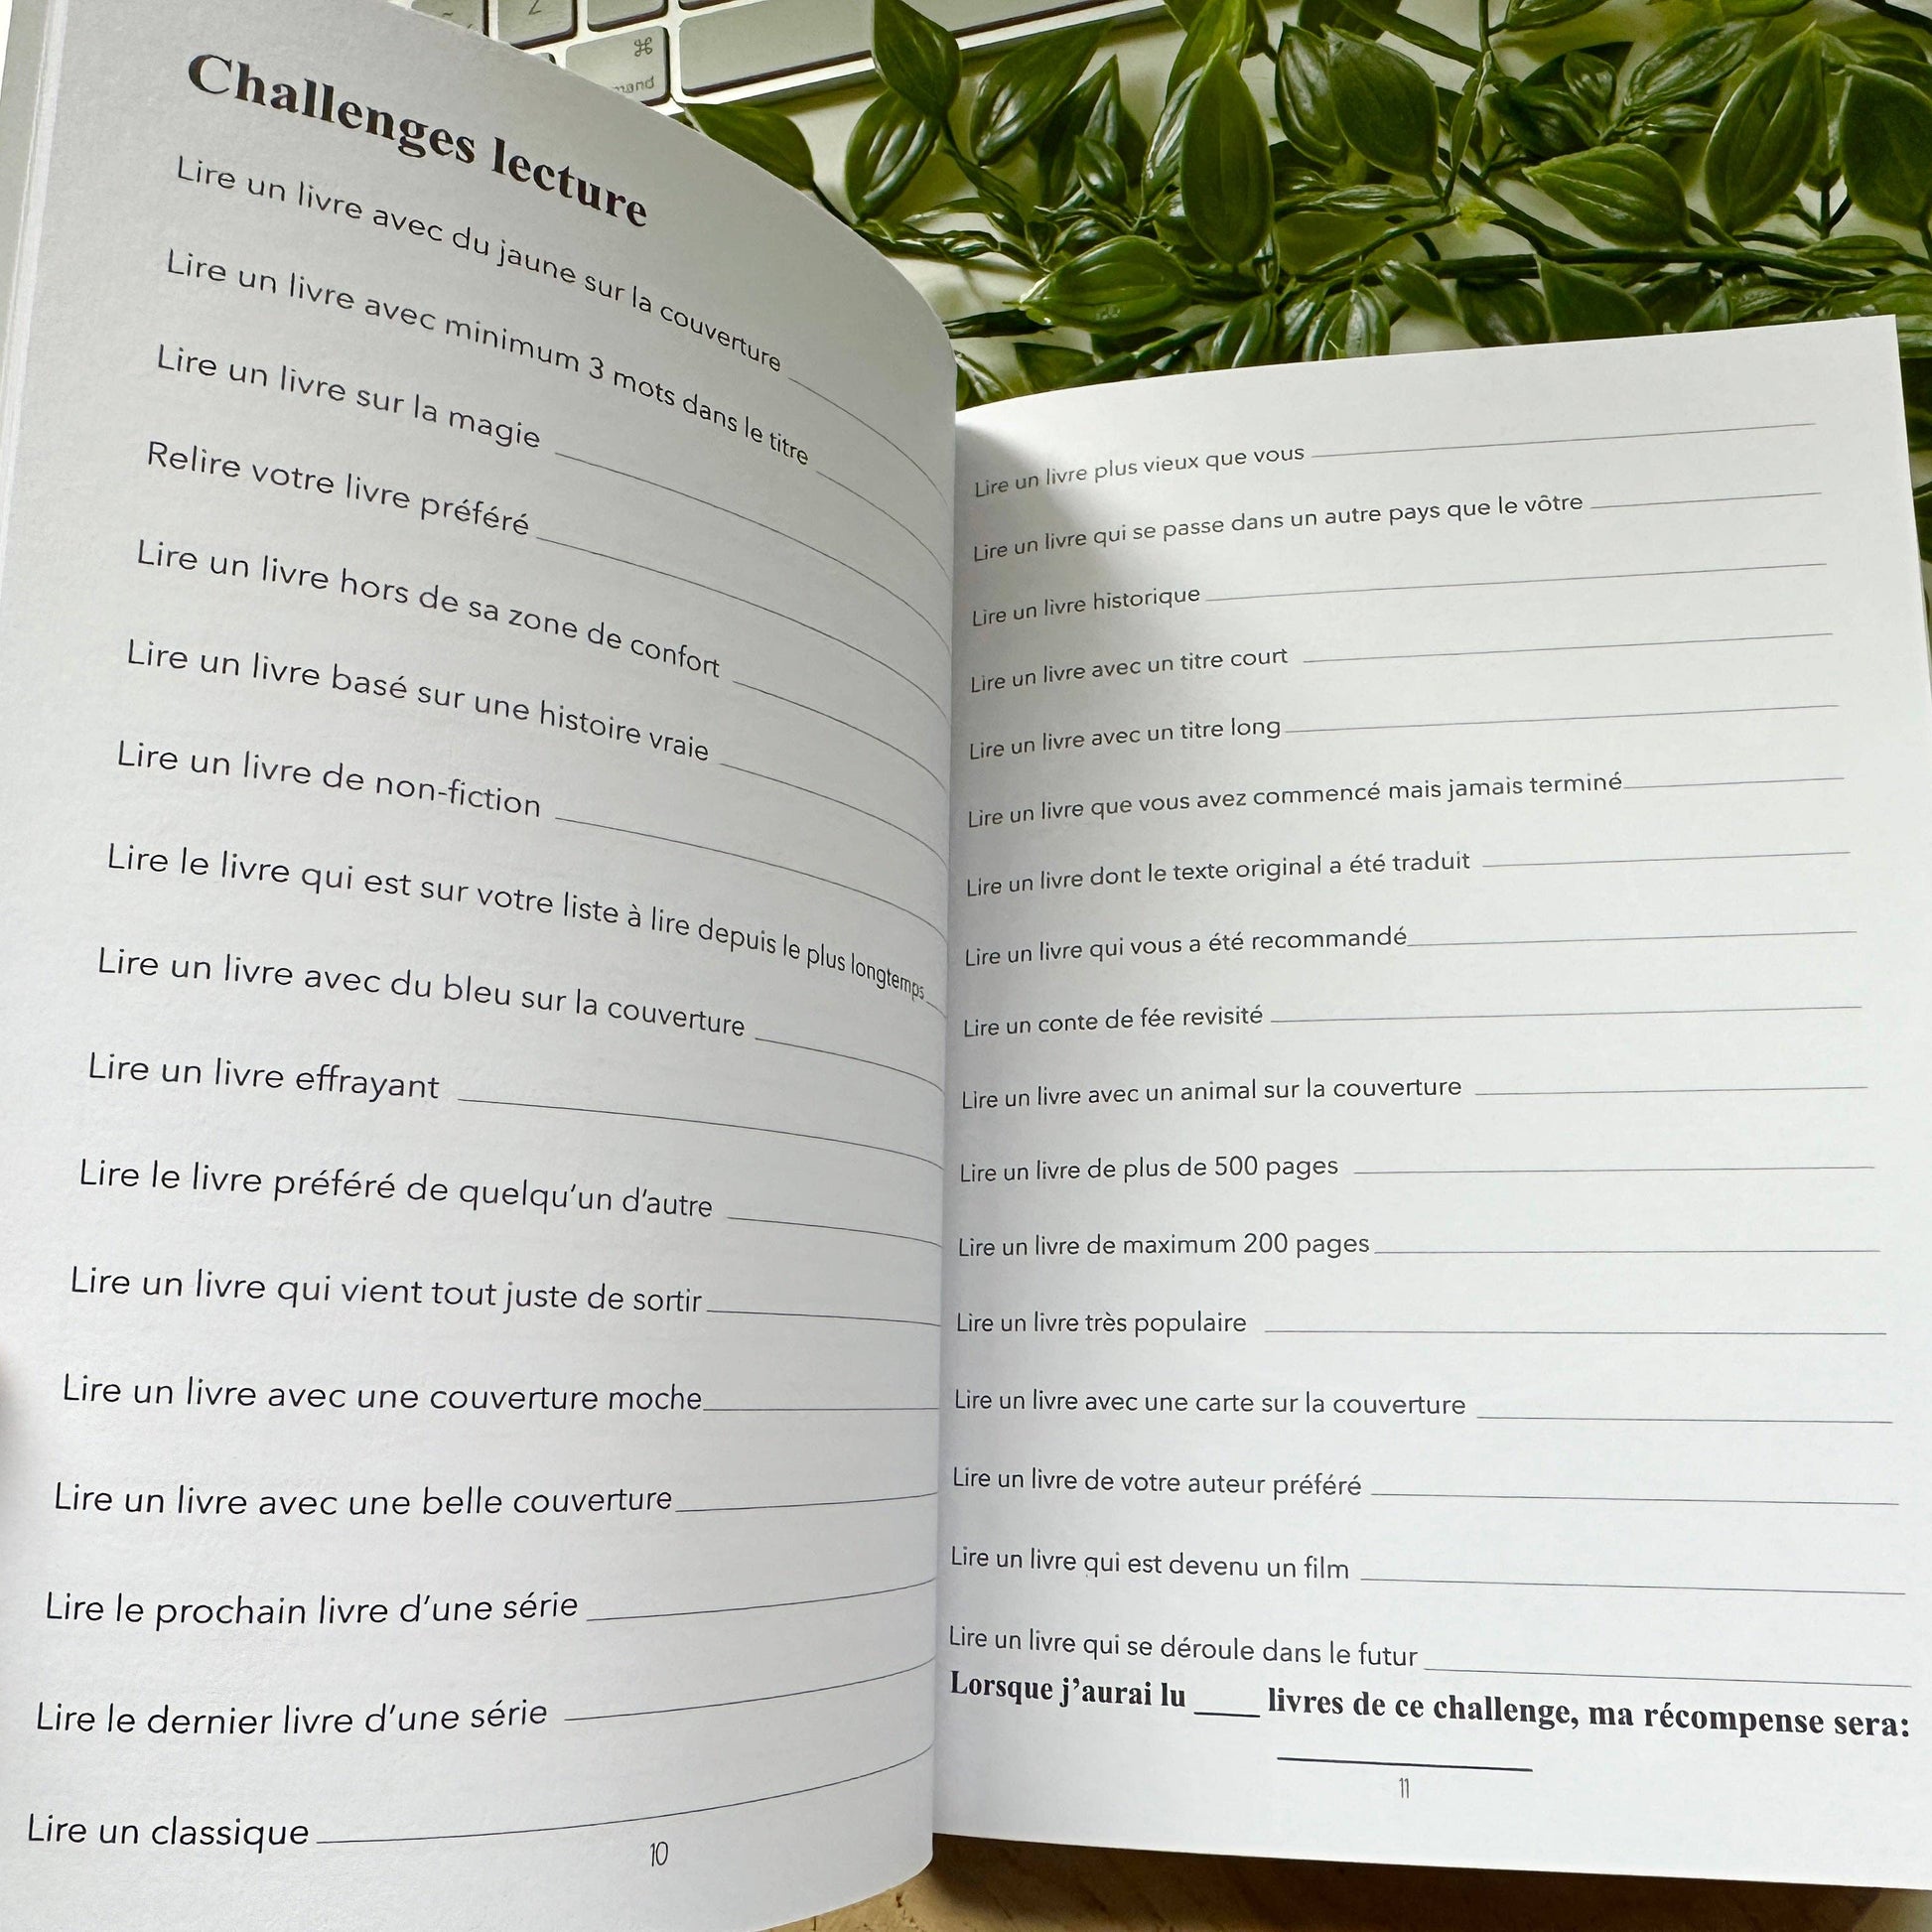 Z
⌘
mand
Challenges lecture
Lire un livre avec du jaune sur la couverture
Lire un livre avec minimum 3 mots dans le titre
Lire un livre sur la magie
Relire votre livre préféré
Lire un livre hors de sa zone de confort
Lire un livre basé sur une histoire vraie
Lire un livre de non-fiction
Lire le livre qui est sur votre liste à lire depuis le plus longtemps
Lire un livre avec du bleu sur la couverture
Lire un livre effrayant
Lire le livre préféré de quelqu'un d'autre
Lire un livre qui vient tout juste de sortir
Lire un livre avec une couverture moche
Lire un livre avec une belle couverture
Lire le prochain livre d'une série
Lire le dernier livre d'une série
Lire un classique
10
Lire un livre plus vieux que vous
Lire un livre qui se passe dans un autre pays que le vôtre
Lire un livre historique
Lire un livre avec un titre court
Lire un livre avec un titre long
Lire un livre que vous avez commencé mais jamais terminé
Lire un livre dont le texte original a été traduit
Lire un livre qui vous a été recommandé
Lire un conte de fée revisité
Lire un livre avec un animal sur la couverture
Lire un livre de plus de 500 pages
Lire un livre de maximum 200 pages
Lire un livre très populaire
Lire un livre avec une carte sur la couverture
Lire un livre de votre auteur préféré
Lire un livre qui est devenu un film
Lire un livre qui se déroule dans le futur
Lorsque j'aurai lu ____ livres de ce challenge, ma récompense sera:
11